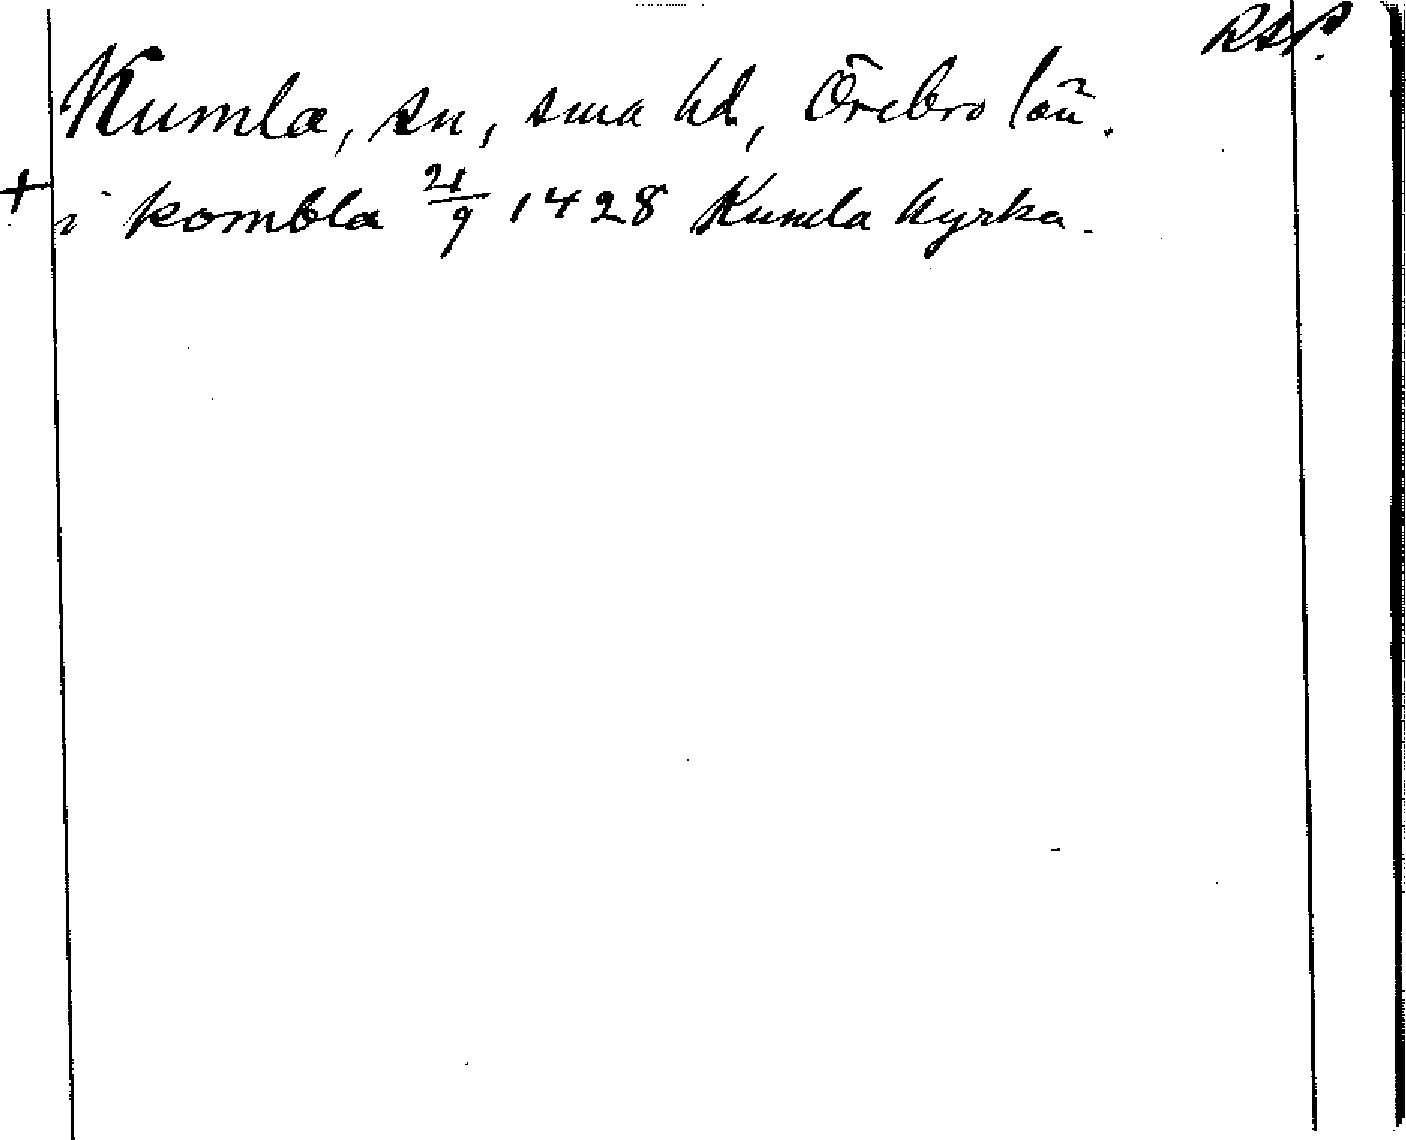 RAp.
Kumla, sn, sma hd, Örebro län.
+ i kombla 21/9 1428 Kumla kyrka.